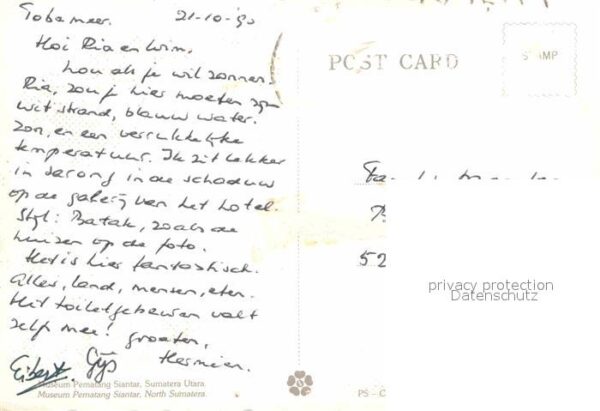 Tobameer. 21-10-'90
Hoi Ria en Wim.
Nou als je wil zonnen
Ria, zou je hier moeten zijn
wit strand, blauw water.
zon, en een verrukkelijke
temperatuur. Ik zit lekker
in sarong in de schaduw
op de galerij van het hotel.
Stijl: Batak, zoals de
huizen op de foto.
Het is hier fantastisch.
Alles, land, mensen, eten.
Het toiletgebeuren valt
zelfs mee! groeten,
Gijs Hermien.
Museum Pematang Siantar, Sumatera Utara
Museum Pematang Siantar, North Sumatera
POST CARD
STAMP
Fa
52
privacy protection
Datenschutz
PS - C